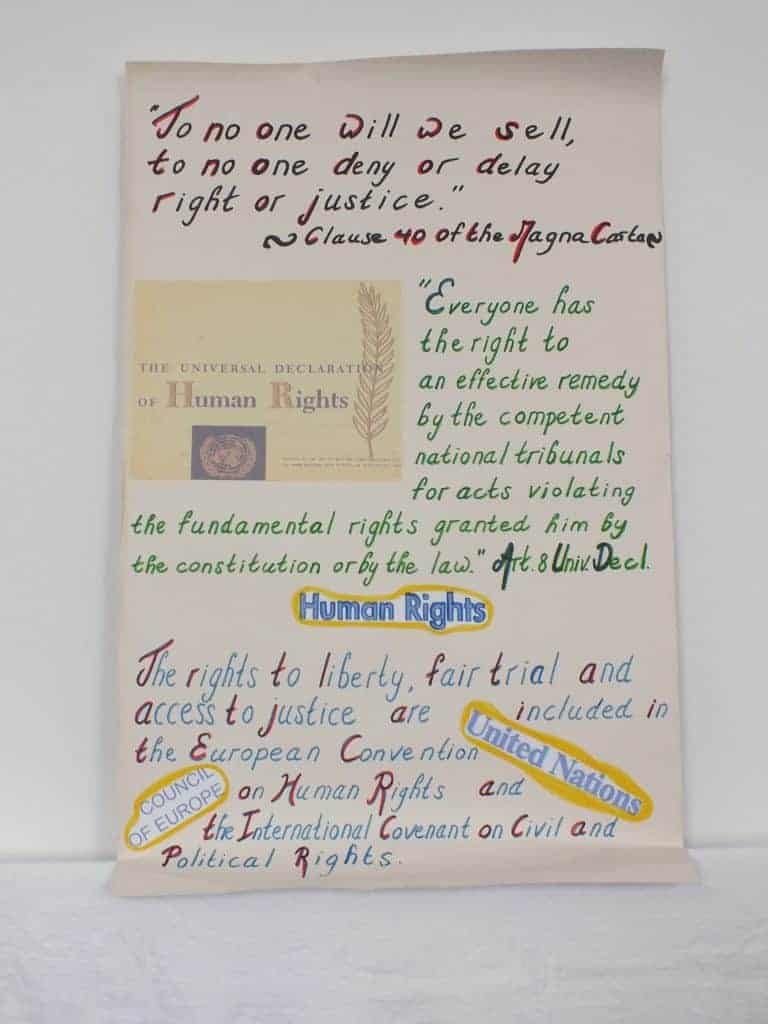 "To no one will we sell,
to no one deny or delay
right or justice."
~ Clause 40 of the Magna Carta ~
THE UNIVERSAL DECLARATION
OF Human Rights
"Everyone has
the right to
an effective remedy
by the competent
national tribunals
for acts violating
the fundamental rights granted him by
the constitution or by the law." Art. 8 Univ. Decl.
Human Rights
The rights to liberty, fair trial and
access to justice are included in
the European Convention
United Nations
COUNCIL
OF EUROPE
on Human Rights and
the International Covenant on Civil and
Political Rights.